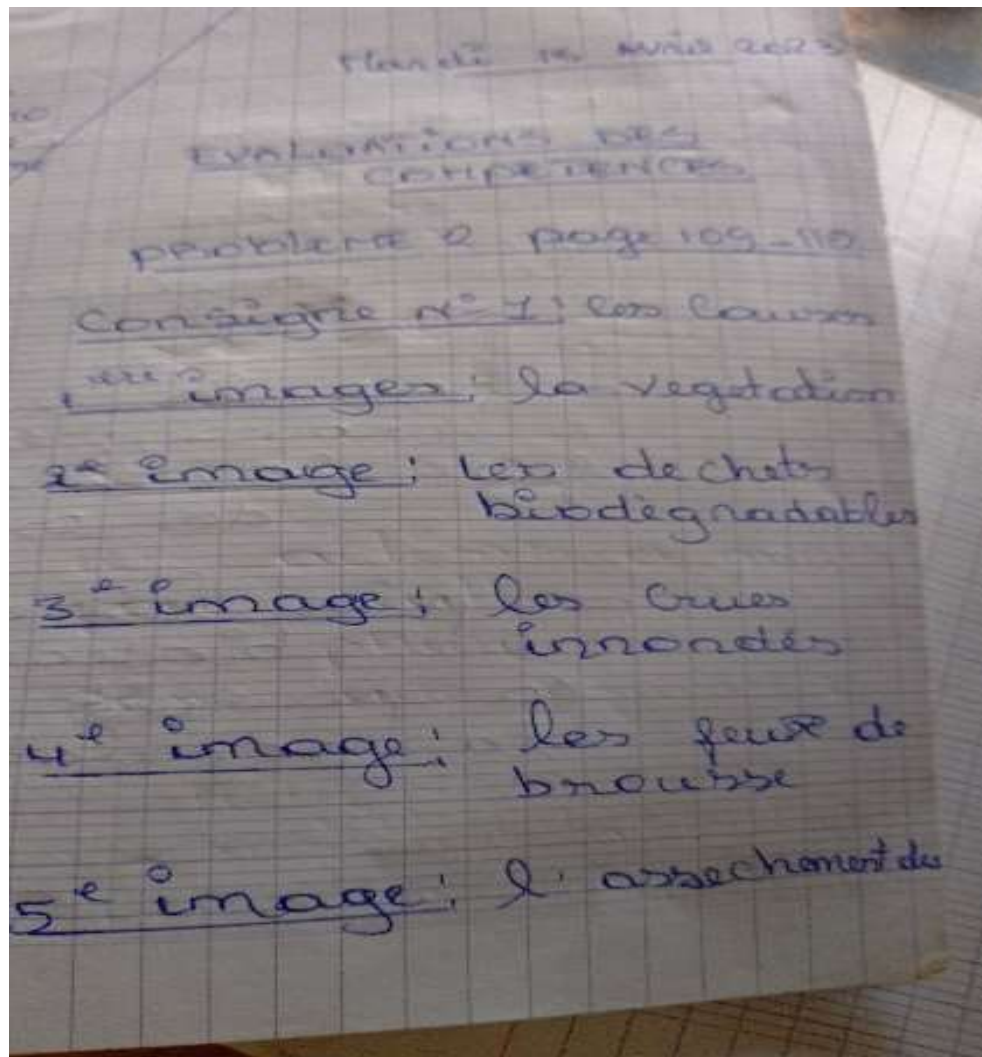 Mardi 18 AVRIL 2023
EVALUATIONS DES
COMPETENCES
PROBLEME 2 page 109-110
Consigne N° 1 : les Causes
1ère images : la vegetation
2e image : Les dechets
biodégradables
3e image : les crues
innondés
4e image : les feux de
brousse
5e image : l'assechement des